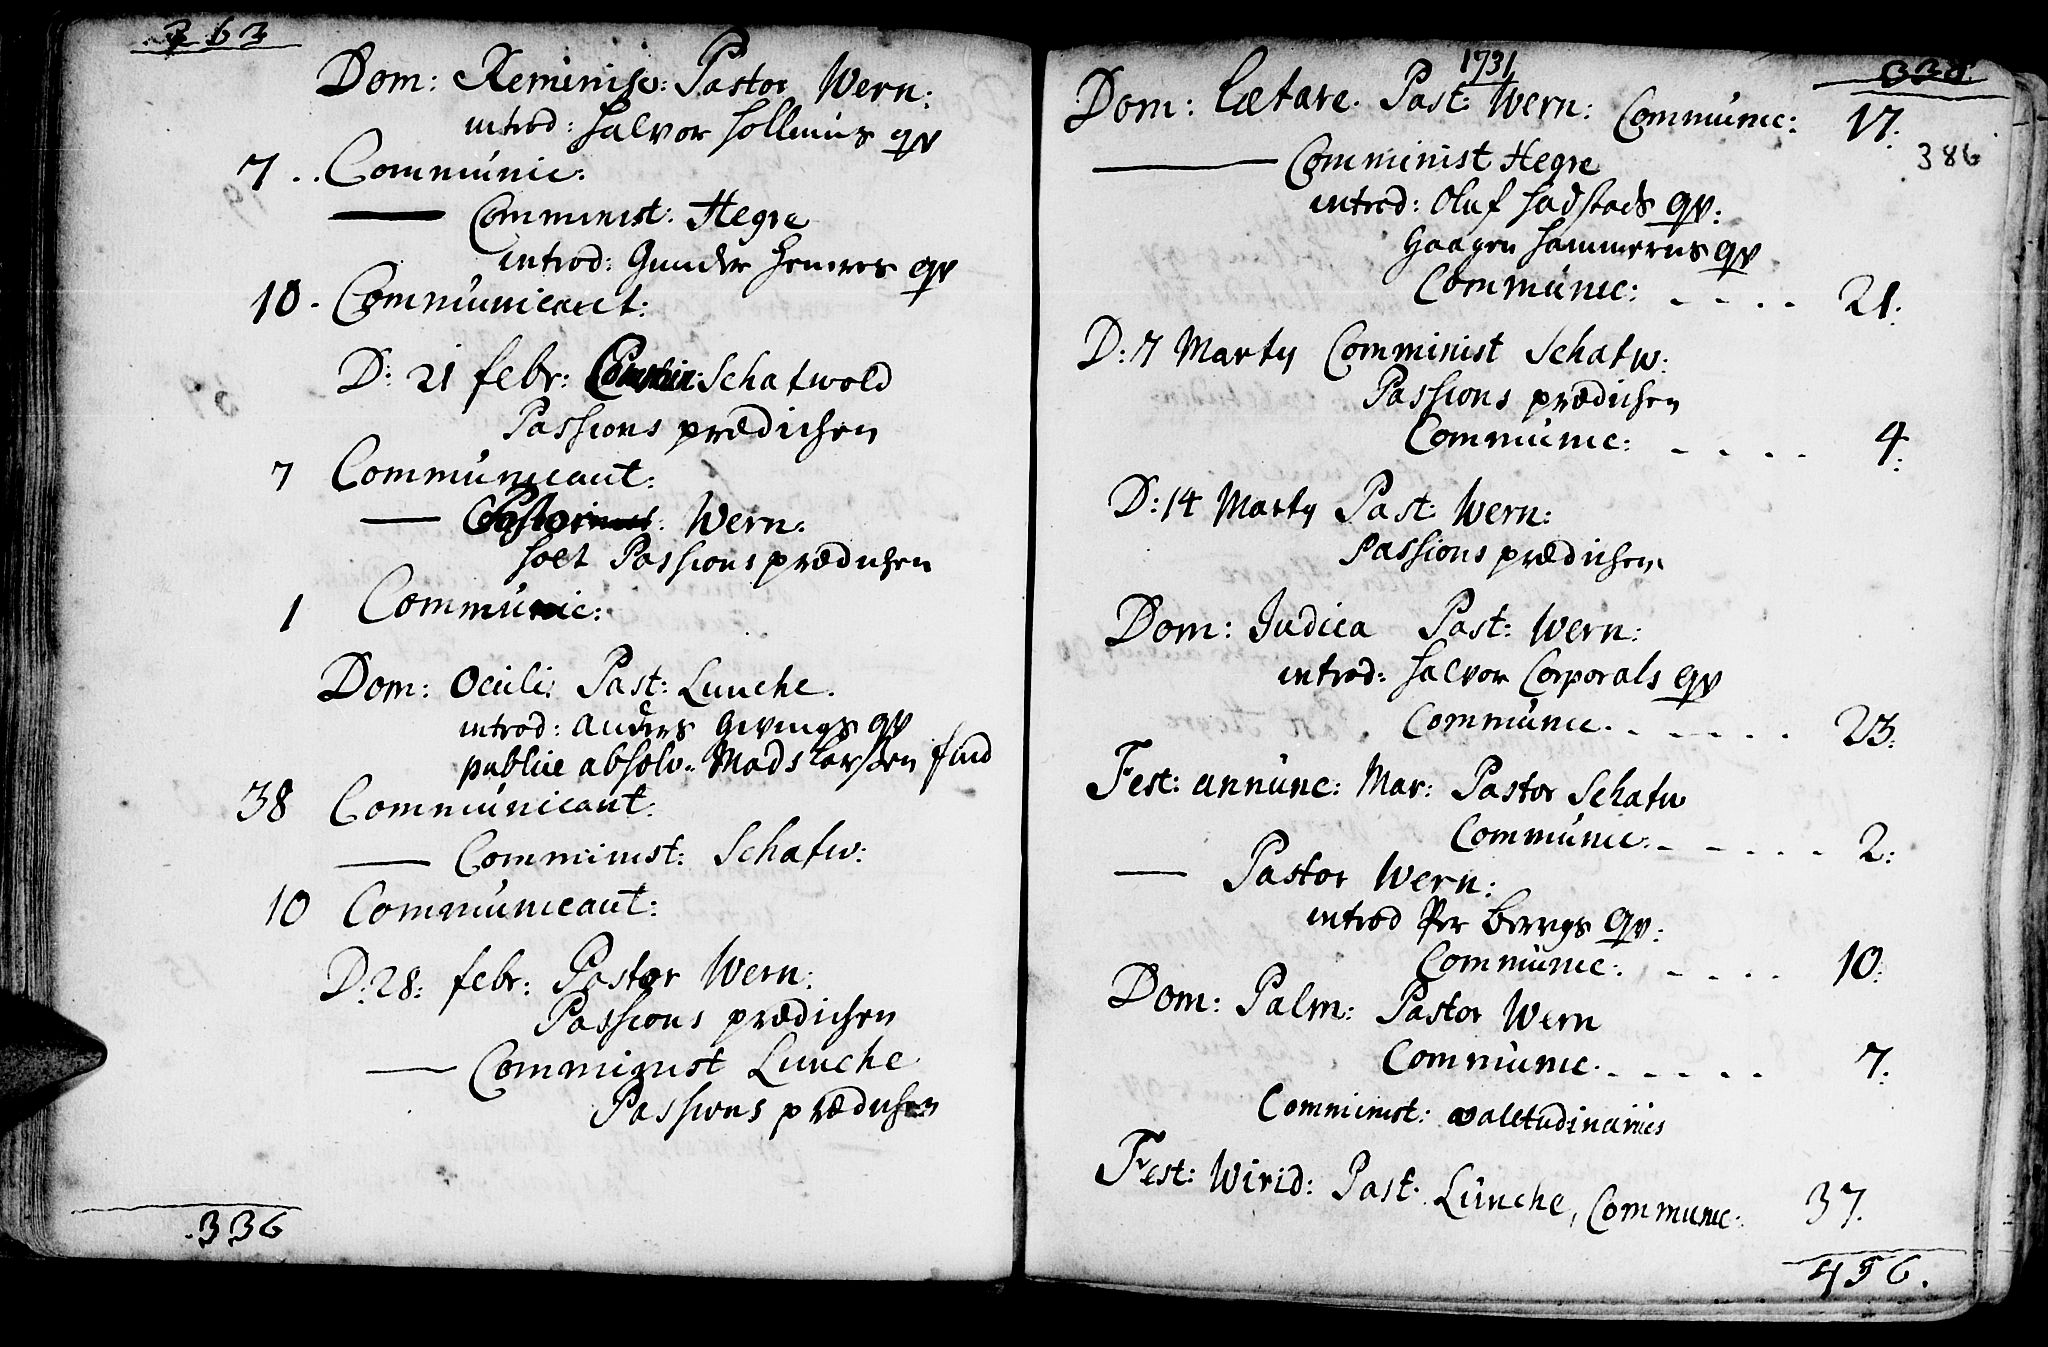 263
Dom: Reminisc: Pastor Wern:
introd: Halvor Hollmus qv
7 .. Communic:
— Comminist: Hegre
introd: Gunder Hemres qv
10 - Communicant:
D: 21 febr: Schatwold
Passions prædichen
7 Communicant:
— Pastor Wern:
holt Passions prædichen
1 Communic:
Dom: Oculi: Past: Lunche.
introd: Anders Gevings qv
publice absolv: Mads Larssen
38 Communicant:
— Comminist: Schatw:
10 Communicant:
D: 28: febr: Pastor Wern:
Passions prædichen
— Comminist Lunche
Passions prædichen
336
1731
336
Dom: Lætare. Past: Wern: Communic: 17:
386
— Comminist Hegre
introd: Oluf Hadstads qv:
Haagen Hammerens qv
Communic: - - - - 21:
D: 7 Martij Comminist Schatw:
Passions prædichen
Communic: - - - - 4:
D: 14 Martij Past: Wern:
Passions prædichen
Dom: Judica Past: Wern:
introd: Halvor Corporals qv
Communic. - - - - - 23:
Fest: annunc: Mar: Pastor Schatw
Communic. - - - - - 2:
— Pastor Wern:
introd Per Bergs qv:
Communic: - - - - 10:
Dom: Palm: Pastor Wern
Communic. - - - - - 7:
Comminist: valetudinarius
Fest: Wirid: Past. Lunche, Communic: 37.
456.